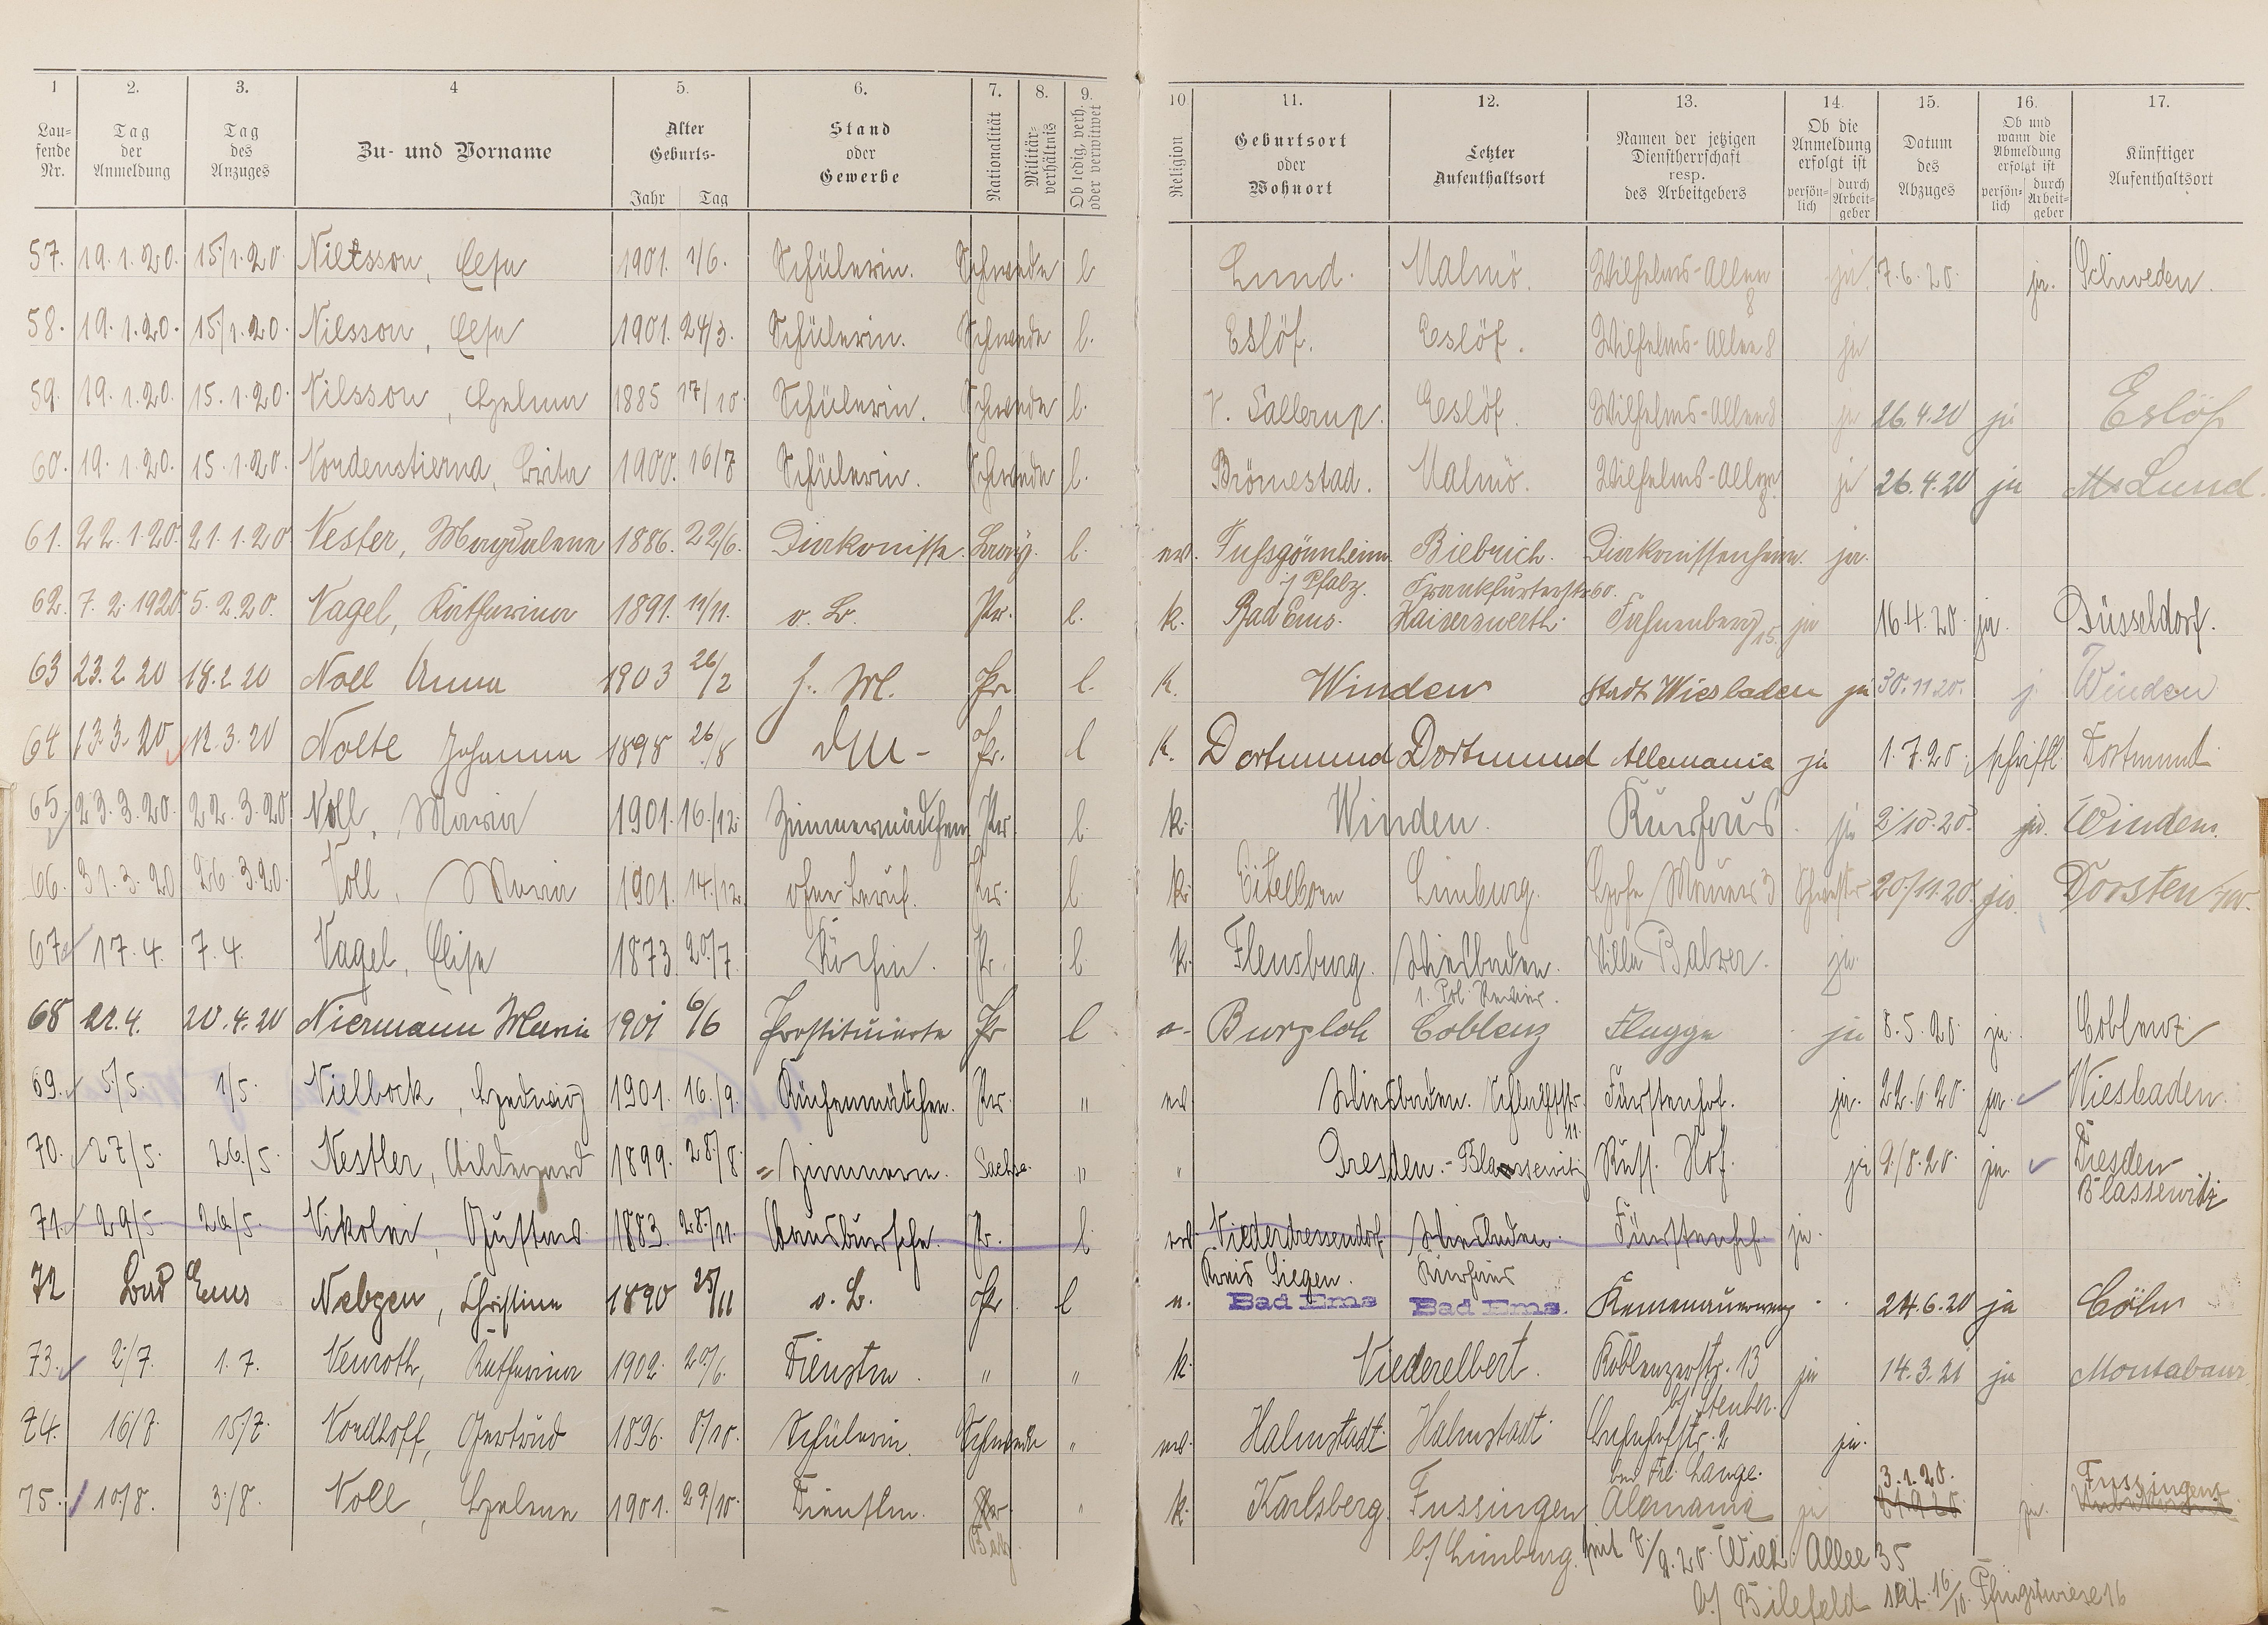 1 2. 3. 4 5. 6. 7. 8. 9. 10 11. 12. 13. 14. 15. 16. 17.
Lau-fende Nr. Tag der Anmeldung Tag des Anzuges Zu- und Vorname Alter Geburts- Jahr Tag Stand oder Gewerbe Nationalität Militär-verhältnis Ob ledig, verh. oder verwitwet Religion Geburtsort oder Wohnort Letzter Aufenthaltsort Namen der jetzigen Dienstherrschaft resp. des Arbeitgebers Ob die Anmeldung erfolgt ist persön-lich durch Arbeit-geber Datum des Abzuges Ob und wann die Abmeldung erfolgt ist persön-lich durch Arbeit-geber Künftiger Aufenthaltsort
57. 19.1.20. 15/1.20. Niltsson, Elsa 1901. 1/6. Schülerin. Schwede l Lund. Malmö. Wilhelms-Allee 8 ja. 7.6.20. ja. Schweden.
58. 19.1.20. 15/1.20. Nilsson, Elsa 1901. 24/3. Schülerin. Schwede l. Eslöf. Eslöf. Wilhelms-Allee 8 ja
59. 19.1.20. 15.1.20. Nilsson, Helma 1885 17/10. Schülerin. Schwede l. V. Sallerup. Eslöf. Wilhelms-Allee 8 ja 26.4.20 ja Eslöf
60. 19.1.20. 15.1.20. Nordenstierna, Brita 1900. 16/7 Schülerin. Schwede l. Brönestad. Malmö. Wilhelms-Allee 8 ja 26.4.20 ja Lund.
61. 22.1.20. 21.1.20 Nester, Magdalena 1886. 22/6. Diakonisse. Bay. l. ev. Fußgönnheim i/Pfalz. Biebrich. Frankfurterstr. 60. Diakonissenheim. ja.
62. 7.2.1920 5.2.20. Nagel, Katharina 1891. 11/11. o. B. Pr. l. k. Bad Ems. Kaiserswerth. Fahnenberg 15. ja 16.4.20. ja. Düsseldorf.
63 23.2.20 18.2.20 Noll Anna 1903 26/2 Pr l. k. Winden Stadt Wiesbaden ja 30.11.20. j. Winden
64 13.3.20 12.3.20 Nolte Johanna 1898 26/8 Pr. l k. Dortmund Dortmund Allemania ja 1.7.20. schriftl. Dortmund
65. 23.3.20. 22.3.20 Noll, Maria 1901. 16./12. Zimmermädchen Pr l. k. Winden. Kurhaus. ja 2/10.20. ja. Winden.
66. 31.3.20 26.3.20. Noll, Maria 1901. 14./12. ohne Beruf. Pr. l. k. Eitelborn Limburg. Hohe Mauer 3 20/11.20. ja. Dorsten
67. 17.4. 7.4. Nagel, Elise 1873. 20./7. Köchin. Pr. l. k. Flensburg. Wiesbaden. Villa Balzer. ja.
68 21.4. 20.4.20 Niermann Maria 1901 6/6 Prostituierte Pr l Burgloh Coblenz Flugge ja 8.5.20 ja. Coblenz
69. 5/5. 1/5. Nielbock, Hedwig 1901. 16./9. Küchenmädchen. Pr. " ev. Wiesbaden. Fürstenhof. ja. 22.6.20. ja. Wiesbaden.
70. 27/5. 26/5. Nestler, Hildegard 1899. 28./8. = Zimmerm. Sachse. " " Dresden.-Blassewitz Russ. Hof. ja 9./8.20. ja. Dresden Blassewitz
71. 29/5. 26/5. Nikolai, Gustav 1883. 28./11. Hausbursche. Pr. l. ev. Niederdressendorf Kreis Siegen. Wiesbaden. Kurhaus Fürstenhof. ja.
72 Bad Ems Nebgen, Christine 1890 25/11 o. B. Pr. l Bad Ems Bad Ems. Kemenauerweg 24.6.20 ja Cöln
73. 2./7. 1.7. Neuroth, Katharina 1902. 20/6. Dienstm. " " k. Niederelbert. Koblenzerstr. 13 b/ Steuber. ja 14.3.21 ja Montabaur
74. 16/7. 15/7. Nordhoff, Gertrud 1896. 8./10. Schülerin. Schwede " ev. Halmstadt Halmstadt Bahnhofstr. 2 bei Frl. Lange. ja.
75. 10./8. 3./8. Noll, Helene 1901. 29/10. Dienstm. " k. Karlsberg. Fussingen b/ Limburg. Alemania ja 3.1.20. ja. Fussingen
Wilh. Allee 35
b/ Bilefeld seit 16/10. Pfingstwiese 16